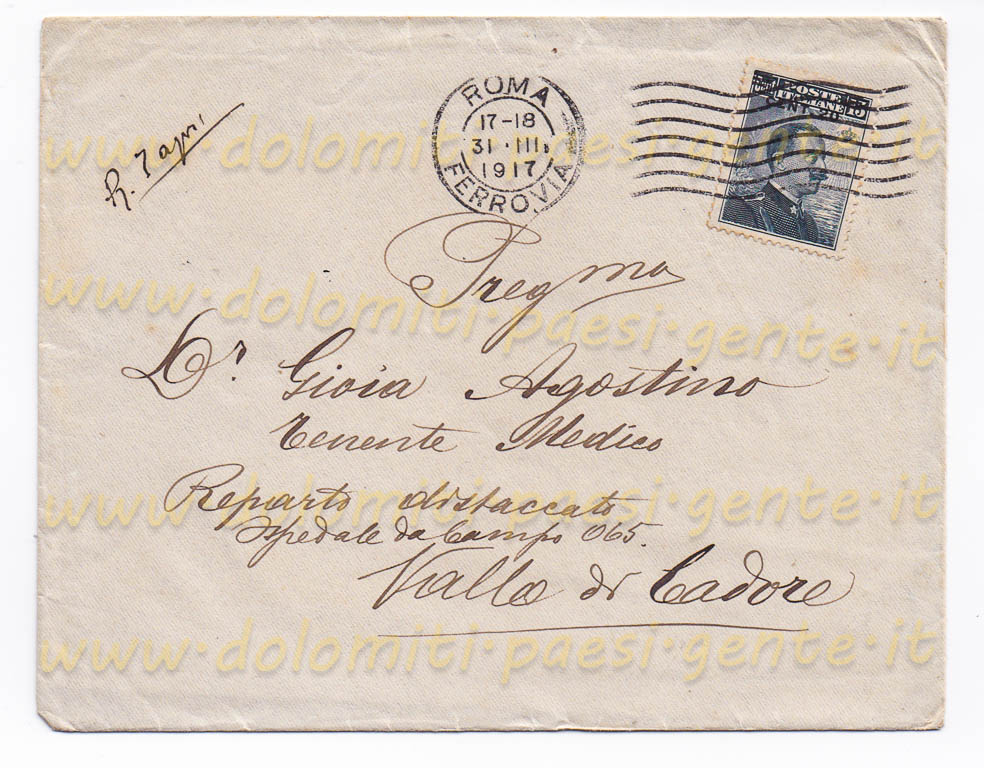 ROMA
17-18
31·III
1917
FERROVIA
POSTE
ITALIANE 15
CENT 20
R. 7 apri
Preg mo
Dr. Gioia Agostino
Tenente Medico
Reparto distaccato
Ospedale da Campo 065.
Valle di Cadore
www.dolomiti-paesi-gente.it
www.dolomiti-paesi-gente.it
www.dolomiti-paesi-gente.it
www.dolomiti-paesi-gente.it